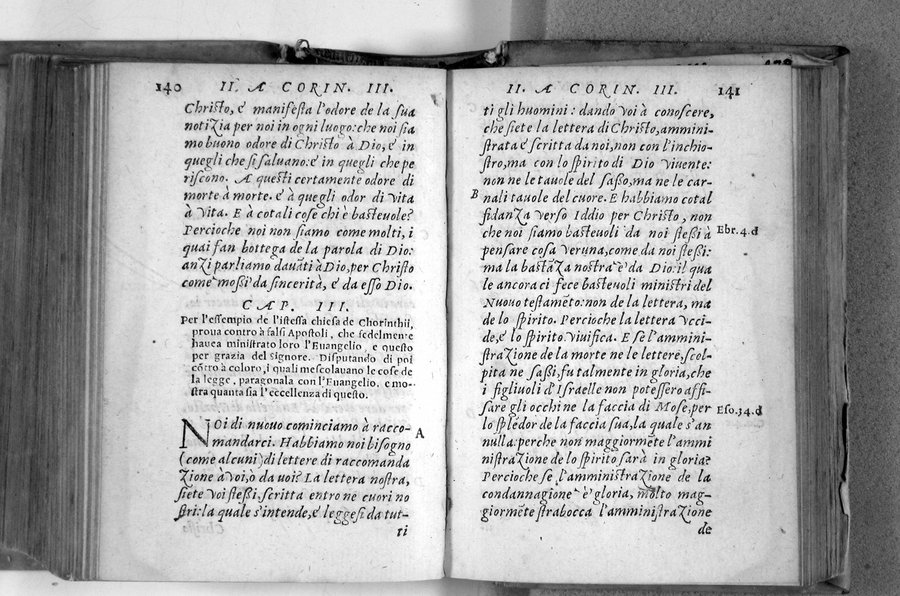 140 II. A CORIN. III.
Christo, e' manifesta l'odore de la sua
notizia per noi in ogni luogo: che noi sia
mo buono odore di Christo à Dio, e' in
quegli che si saluano: e' in quegli che pe
riscono. A questi certamente odore di
morte à morte. e' à quegli odor di vita
à vita. E à cotali cose chi è basteuole?
Percioche noi non siamo come molti, i
quai fan bottega de la parola di Dio:
anzi parliamo dauãti à Dio, per Christo
come mossi da sincerità, e' da esso Dio.
CAP. III.
Per l'essempio de l'istessa chiesa de Chorinthii,
proua contrò à falsi Apostoli, che fedelmente
hauea ministrato loro l'Euangelio, e questo
per grazia del Signore. Disputando di poi
cõtrò à coloro, i quali mescolauano le cose de
la legge, paragonala con l'Euangelio, e mo-
stra quanta sia l'eccellenza di questo.
NOi di nuouo cominciamo à racco-
mandarci. Habbiamo noi bisogno
(come alcuni) di lettere di raccomanda
zione à voi, ò da uoi? La lettera nostra,
siete voi stessi, scritta entro ne cuori no
stri: la quale s'intende, e' leggesi da tut-
ti
A
II. A CORIN. III. 141
ti gli huomini: dando voi à conoscere,
che siete la lettera di Christo, ammini-
strata e' scritta da noi, non con l'inchio-
stro, ma con lo spirito di Dio viuente:
non ne le tauole del sasso, ma ne le car-
nali tauole del cuore. E habbiamo cotal
fidanza verso Iddio per Christo, non
che noi siamo basteuoli da noi stessi à
pensare cosa veruna, come da noi stessi:
ma la bastãza nostra e' da Dio: il qua
le ancora ci fece basteuoli ministri del
Nuouo testamẽto: non de la lettera, ma
de lo spirito. Percioche la lettera vcci-
de, e' lo spirito viuifica. E se l'ammini-
strazione de la morte ne le lettere, scol-
pita ne sassi, fu talmente in gloria, che
i figliuoli d'Israelle non potessero affi-
sare gli occhi ne la faccia di Mose, per
lo splẽdor de la faccia sua, la quale s'an
nulla: perche non maggiormẽte l'ammi
nistrazione de lo spirito sarà in gloria?
Percioche se l'amministrazione de la
condannagione è gloria, molto mag-
giormẽte strabocca l'amministrazione
de
B
Ebr. 4. d
Eso. 34. d